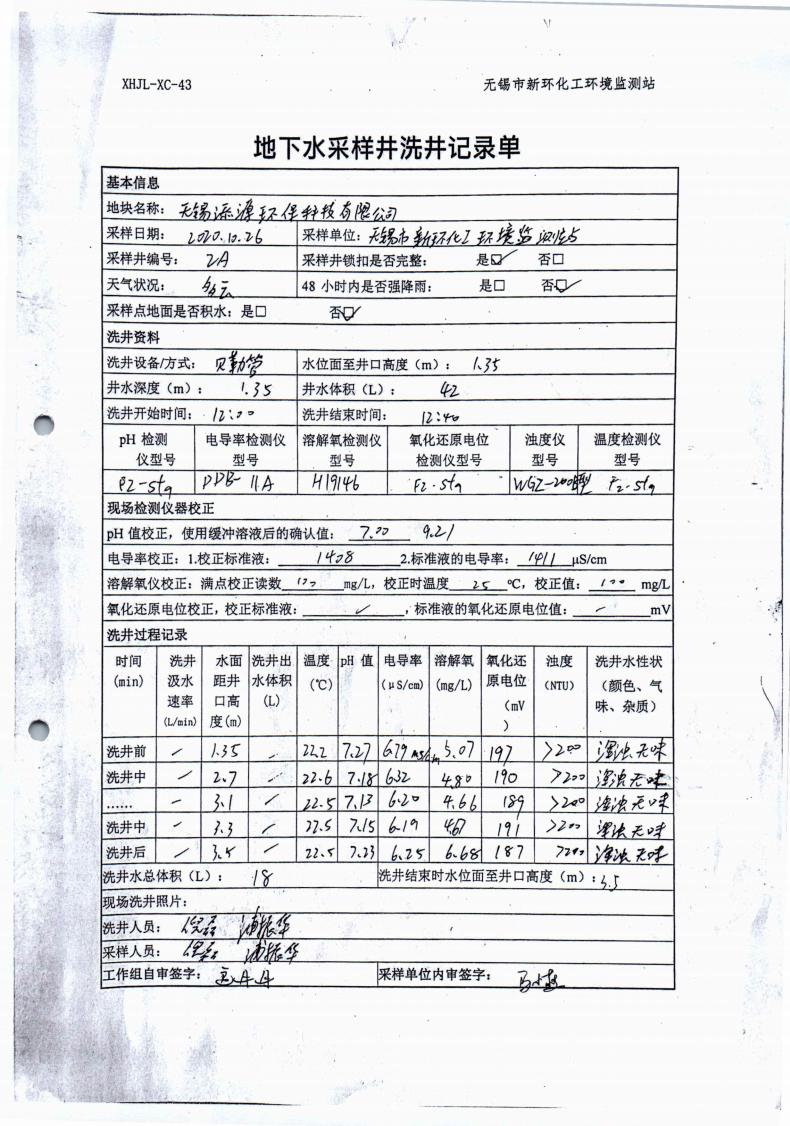 XHJL-XC-43 无锡市新环化工环境监测站
地下水采样井洗井记录单
基本信息
地块名称: 无锡添源环保科技有限公司
采样日期: 2020.10.26 采样单位: 无锡市新环化工环境监测站
采样井编号: 2A 采样井锁扣是否完整: 是☑ 否□
天气状况: 多云 48 小时内是否强降雨: 是□ 否☑
采样点地面是否积水: 是□ 否☑
洗井资料
洗井设备/方式: 贝勒管 水位面至井口高度(m): 1.35
井水深度(m): 1.35 井水体积(L): 42
洗井开始时间: 12:00 洗井结束时间: 12:40
pH 检测仪型号 电导率检测仪型号 溶解氧检测仪型号 氧化还原电位检测仪型号 浊度仪型号 温度检测仪型号
PZ-sta DDB-11A HI9146 FZ-sta WGZ-200 FZ-sta
现场检测仪器校正
pH 值校正,使用缓冲溶液后的确认值: 7.00 9.21
电导率校正: 1.校正标准液: 1408 2.标准液的电导率: 1411 μS/cm
溶解氧仪校正: 满点校正读数 100 mg/L, 校正时温度 25 ℃, 校正值: 100 mg/L
氧化还原电位校正,校正标准液: ✓ ,标准液的氧化还原电位值: - mV
洗井过程记录
时间(min) 洗井汲水速率(L/min) 水面距井口高度(m) 洗井出水体积(L) 温度(℃) pH 值 电导率(μS/cm) 溶解氧(mg/L) 氧化还原电位(mV) 浊度(NTU) 洗井水性状(颜色、气味、杂质)
洗井前 / 1.35 / 22.2 7.27 6.79 ms/cm 5.07 197 >200 浑浊无味
洗井中 / 2.7 / 22.6 7.18 632 4.80 190 >200 浑浊无味
…… - 3.1 / 22.5 7.13 6.20 4.66 189 >200 浑浊无味
洗井中 - 3.3 / 22.5 7.15 6.19 4.67 191 >200 浑浊无味
洗井后 / 3.5 / 22.5 7.23 6.25 6.68 187 >200 浑浊无味
洗井水总体积(L): 18 洗井结束时水位面至井口高度(m): 3.5
现场洗井照片:
洗井人员: 倪磊 浦振华
采样人员: 倪磊 浦振华
工作组自审签字: 采样单位内审签字: